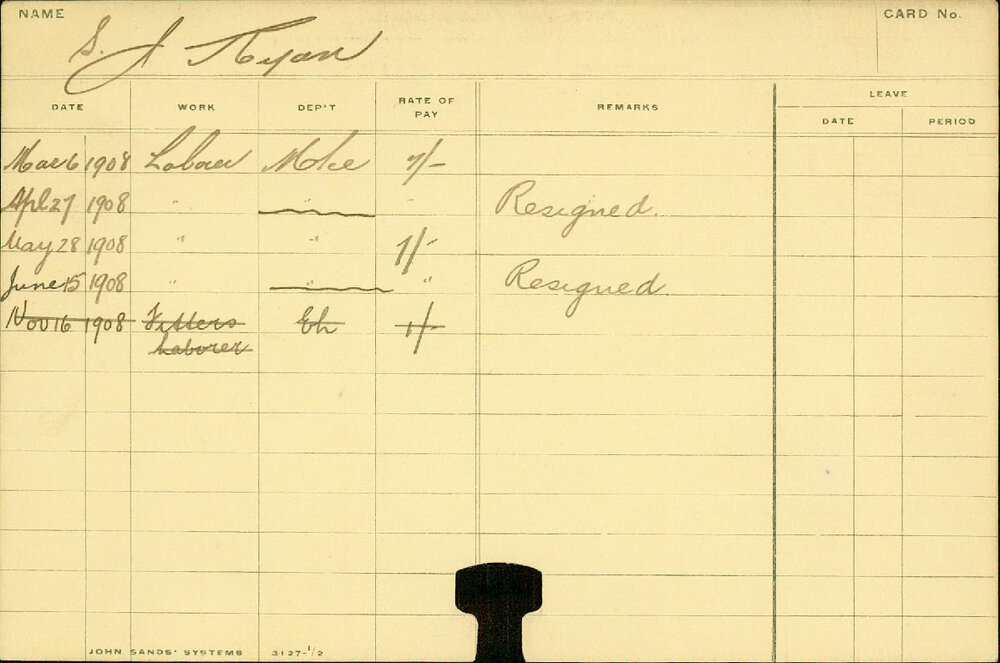 NAME
CARD No.
S. J Ryan
DATE WORK DEP'T RATE OF PAY REMARKS LEAVE
DATE PERIOD
Mar 6 1908 Laborer 7/-
Apl 27 1908 " " " Resigned.
May 28 1908 " " 7/-
June 15 1908 " " " Resigned.
Nov 16 1908 Fitters Eh 1/-
Laborer
JOHN SANDS' SYSTEMS 3127-1/2